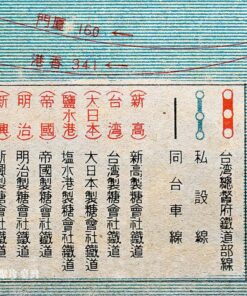 廈門 160
香港 341
台湾總督府鐵道部線
私設線
同台車線
(新高) 新高製糖會社鐵道
(台湾) 台湾製糖會社鐵道
(大日本) 大日本製糖會社鐵道
(鹽水港) 塩水港製糖會社鐵道
(帝國) 帝國製糖會社鐵道
(明治) 明治製糖會社鐵道
(新興) 新興製糖會社鐵道